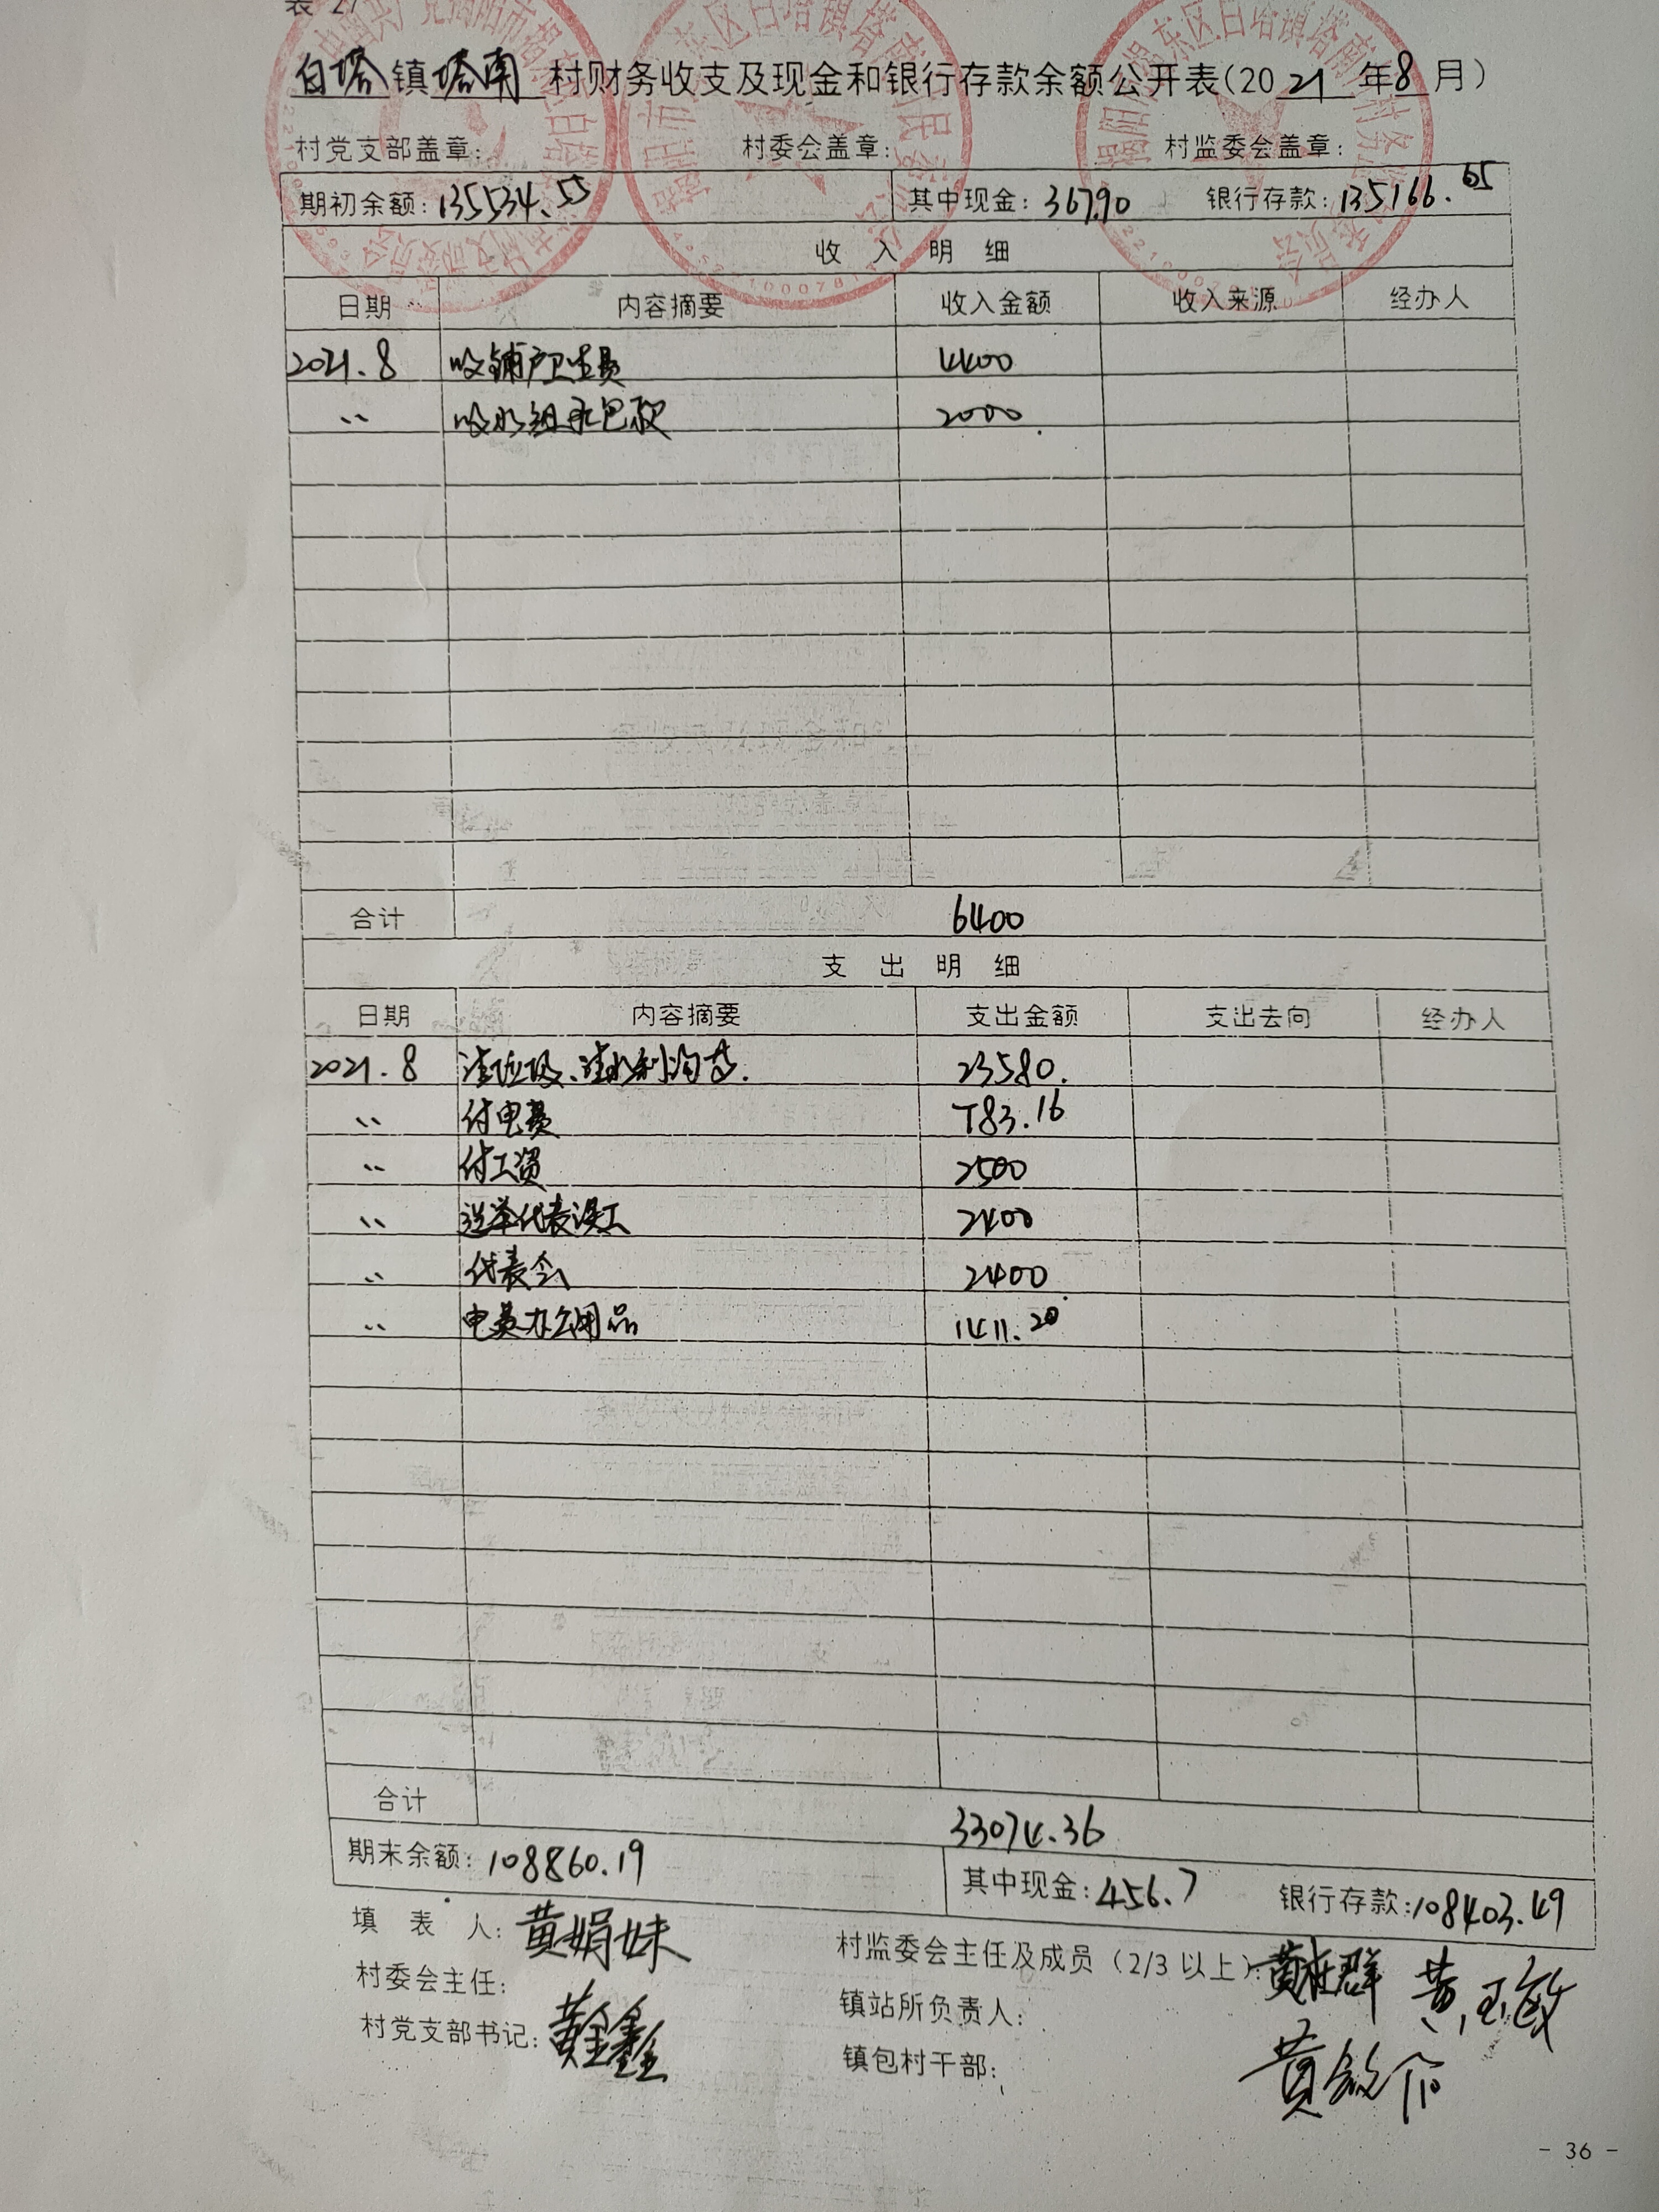 表 27
白塔镇塔南村财务收支及现金和银行存款余额公开表(2021年8月)
村党支部盖章: 村委会盖章: 村监委会盖章:
期初余额:135534.55 其中现金:367.90 银行存款:135166.65
收 入 明 细
日期 内容摘要 收入金额 收入来源 经办人
2021.8 收铺户卫生费 4400
〃 收水组承包款 2000
合计 6400
支 出 明 细
日期 内容摘要 支出金额 支出去向 经办人
2021.8 清垃圾、清水利沟艿. 23580.
〃 付电费 783.16
〃 付工资 2500
〃 选举代表误工 2400
〃 代表会 2400
〃 电费办公用品 1411.20
合计 33074.36
期末余额:108860.19 其中现金:456.7 银行存款:108403.49
填 表 人:黄娟妹 村监委会主任及成员(2/3以上):黄桂群 黄玉敏
村委会主任: 镇站所负责人:
村党支部书记:黄金鑫 镇包村干部:
- 36 -